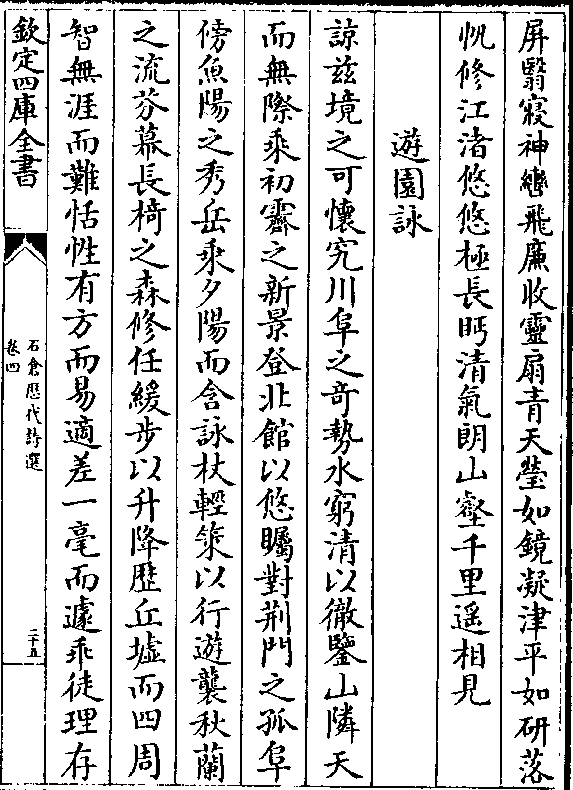 屏翳寢神轡飛廉收靈扇青天瑩如鏡凝津平如研落
帆修江渚悠悠極長眄清氣朗山壑千里遥相見
遊園詠
諒茲境之可懷究川阜之奇勢水窮清以徹鑒山隣天
而無際乘初霽之新景登北館以悠矚對荆門之孤阜
傍魚陽之秀岳乘夕陽而含詠杖輕策以行遊襲秋蘭
之流芬幕長椅之森修任緩步以升降歷丘墟而四周
智無涯而難恬性有方而易適差一毫而遽乖徒理存
欽定四庫全書
石倉歷代詩選
卷四
二十五